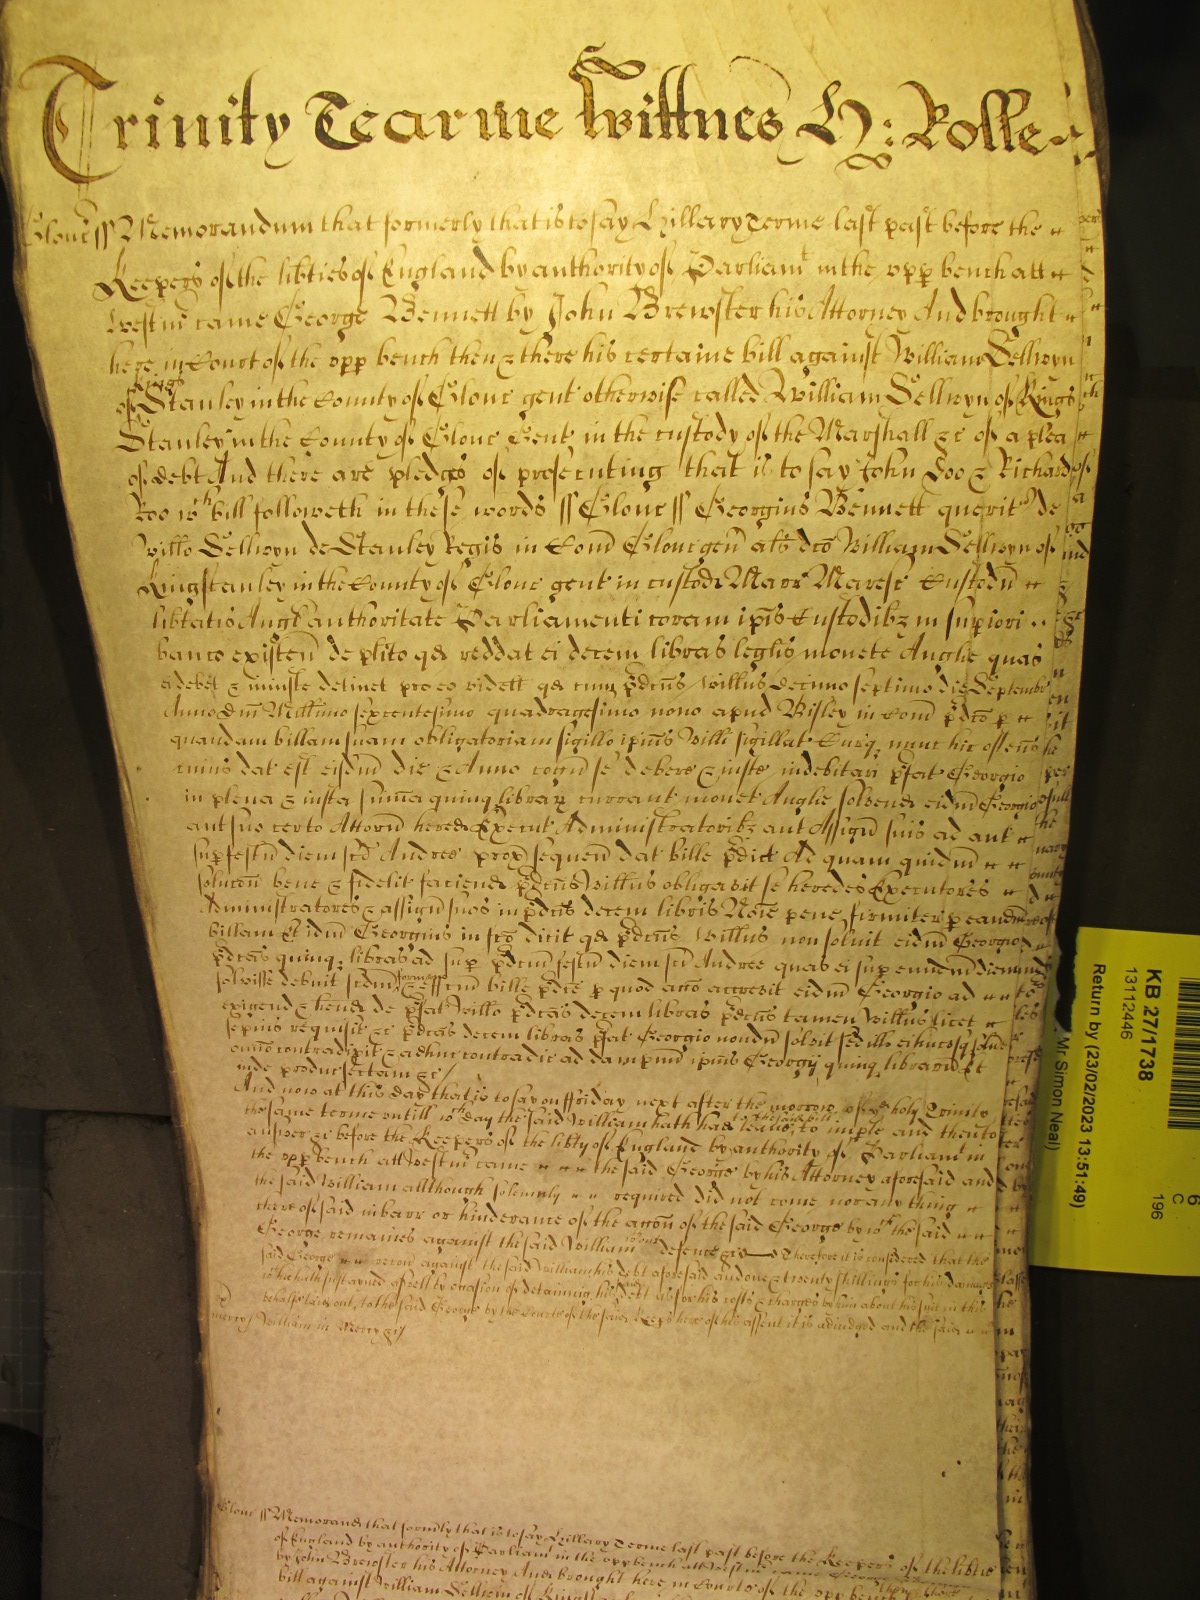 Trinity Tearme Wittnes H: Rolle
Glouc ss Memorandum that formerly that is to say Hillary Terme last past before the
Keepers of the lib'ties of England by authority of Parliamt in the upp bench att
Westm' came George Bennett by John Brewster his Attorney And brought
here in Court of the upp bench then & there his certaine bill against William Sellwyn
of Kings Stanley in the County of Glouc gent otherwise called William Sellwyn of Kings
Stanley in the County of Glouc Gent in the custody of the Marshall &c of a plea
of debt And there are pledges of prosecuting that is to say John Doo & Richard
Roo wch bill followeth in these words ss Glouc ss Georgius Bennett querit' de
Will'o Sellwyn de Stanley Regis in Com' Glouc gen' al's d'co William Sellwyn of
Kingstanley in the County of Glouc gent in custod' Marr' Maresc' Custodu'
lib'tatis Angl' authoritate Parliamenti coram ip'is Custodib3 in sup'iori
banco existen' de pl'ito qd reddat ei decem libras leg'lis monete Anglie quas
ei debet & iniuste detinet pro eo videlt qd cum p'dcus Will'us decimo septimo die Septembr'
Anno D'ni Mill'imo sexcentesimo quadragesimo nono apud Bisley in Com' p'dco p
quandam billam suam obligatoriam sigillo ip'ius Will'i sigillat' Curq, nunc hic ostens'
cuius dat' est eisdm' die & Anno cogn' se debere & iuste indebitari p'fat' Georgio
in plena & iusta sum'a quinq, librar' currant' monet' Anglie solvend' eidm' Georgio
aut suo certo Attorn' hered' Execut' Administratorib3 aut Assign' suis ad aut
sup' festu' diem sc'i Andree prox' sequen' dat' bille p'dict' Ad quam quidm'
soluc'on' bene & fidelit' faciend' p'dcus Will'us obligavit se heredes Executores
Administratores & assign' suos in p'dcis decem libris No'ie pene firmiter p eand'
billam Et idm' Georgius in f'co dicit qd p'dcus Will'us non solvit eidm' Georgio
p'dcas quinq, libras ad sup' p'dcum festu' diem sc'i Andree quas ei sup' eundm' diem
solvisse debuit scdm' formam & eff'cum bille p'dce p quod acc'o accrevit eidm' Georgio ad
exigend' & hend' de p'fat' Will'o p'dcas decem libras p'dcus tamen Will'us licet
sepius requisit' &c p'dcas decem libras p'fat' Georgio nondu' solvit sed ill' ei hucusq, solve'
om'o contradixit & adhuc contradic' ad dampnu' ip'ius Georgij quinq, librar' Et
inde produc' sectam &c/
And now at this day that is to say on ffriday next after the morrow of the holy Trinity
the same terme untill wch day the said William hath had leave to the said bill to imp'le and then to
answer &c before the Keepers of the lib'ty of England by authority of Parliamt in
the upp bench att Westm' came the said George by his Attorney aforesaid and
the said William allthough solemnly required did not come nor any thing
there of said in barr or hinderance of the acc'on of the said George by wch the said
George remaines against the said William without defence &c Therefore it is considered that the
said George recov' against the said William his debt aforesaid and one & twenty shillings for his damages
wch he hath sustayned aswell by occasion of detaining his debt as for his costs & charges by him about his suit in this
behalfe laid out, to the said George by the Courte of the said Keep's here of his assent it is adiudged and the said
mercy William in Mercy &c/
Glouc ss Memorand' that form'ly that is to say Hillary Terme last past before the Keepers of the lib'tie
of England by authority of Parliamt in the upp bench att Westm' came George
by John Brewster his Attorney And brought here in Courte of the upp bench then & there
bill against William Sellwin of Kings
KB 27/1738
13112446
Return by (23/02/2023 13:51:49)
Mr Simon Neal)
6
C
196